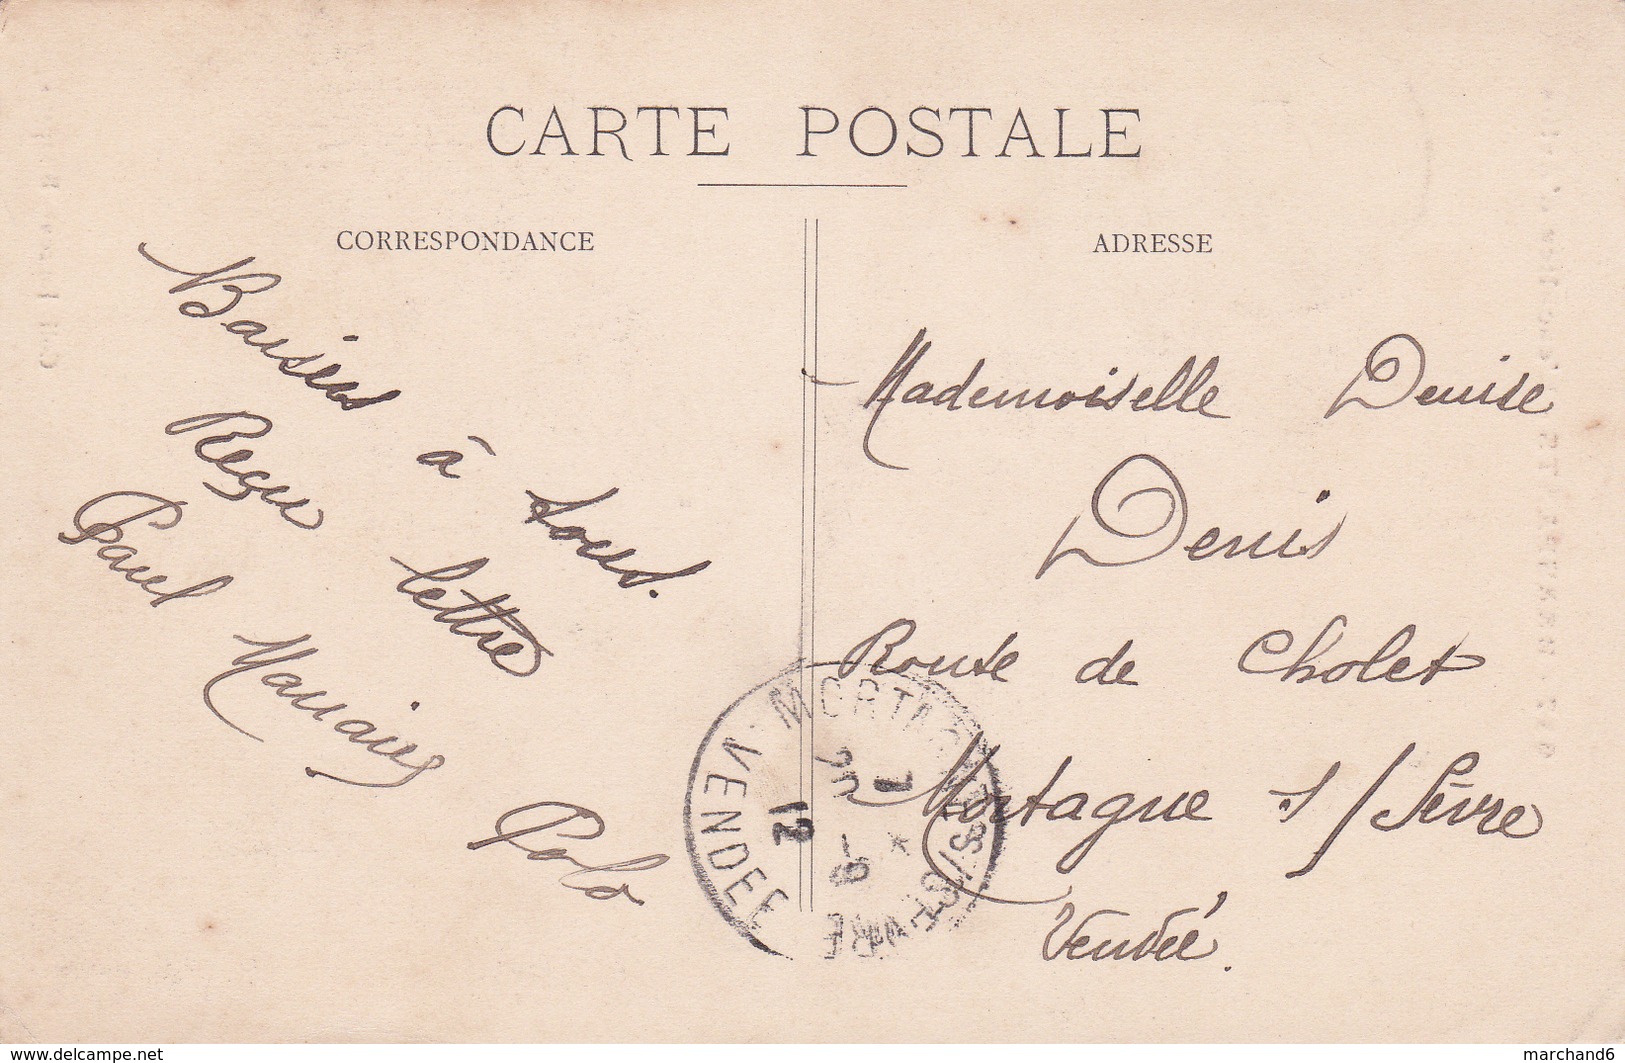 CARTE POSTALE
CORRESPONDANCE
ADRESSE
Baisers à tous.
Reçu lettre
Paul
Polo
Mademoiselle Denise
Denis
Route de Cholet
Mortagne s/Sèvre
Vendée.
MORTAGNE S/SEVRE
VENDEE
12
www.delcampe.net
marchand6